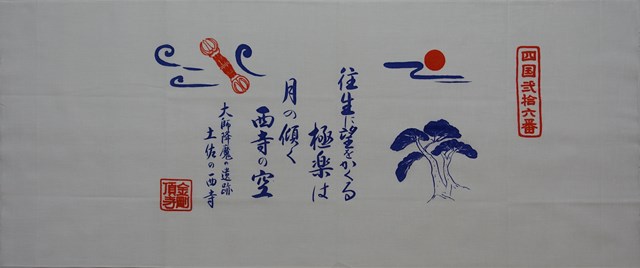 四国弐拾六番
往生に望をかくる
極楽は
月の傾く
西寺の空
大師降魔の遺跡
土佐の西寺
金剛
頂寺